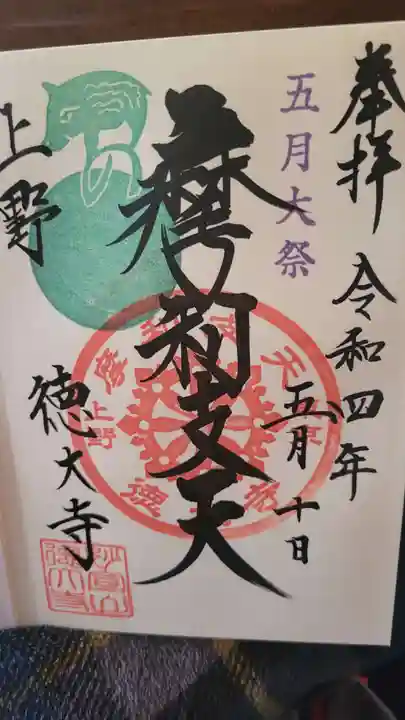 奉拝
令和四年
五月十日
五月大祭
摩利支天
上野
徳大寺